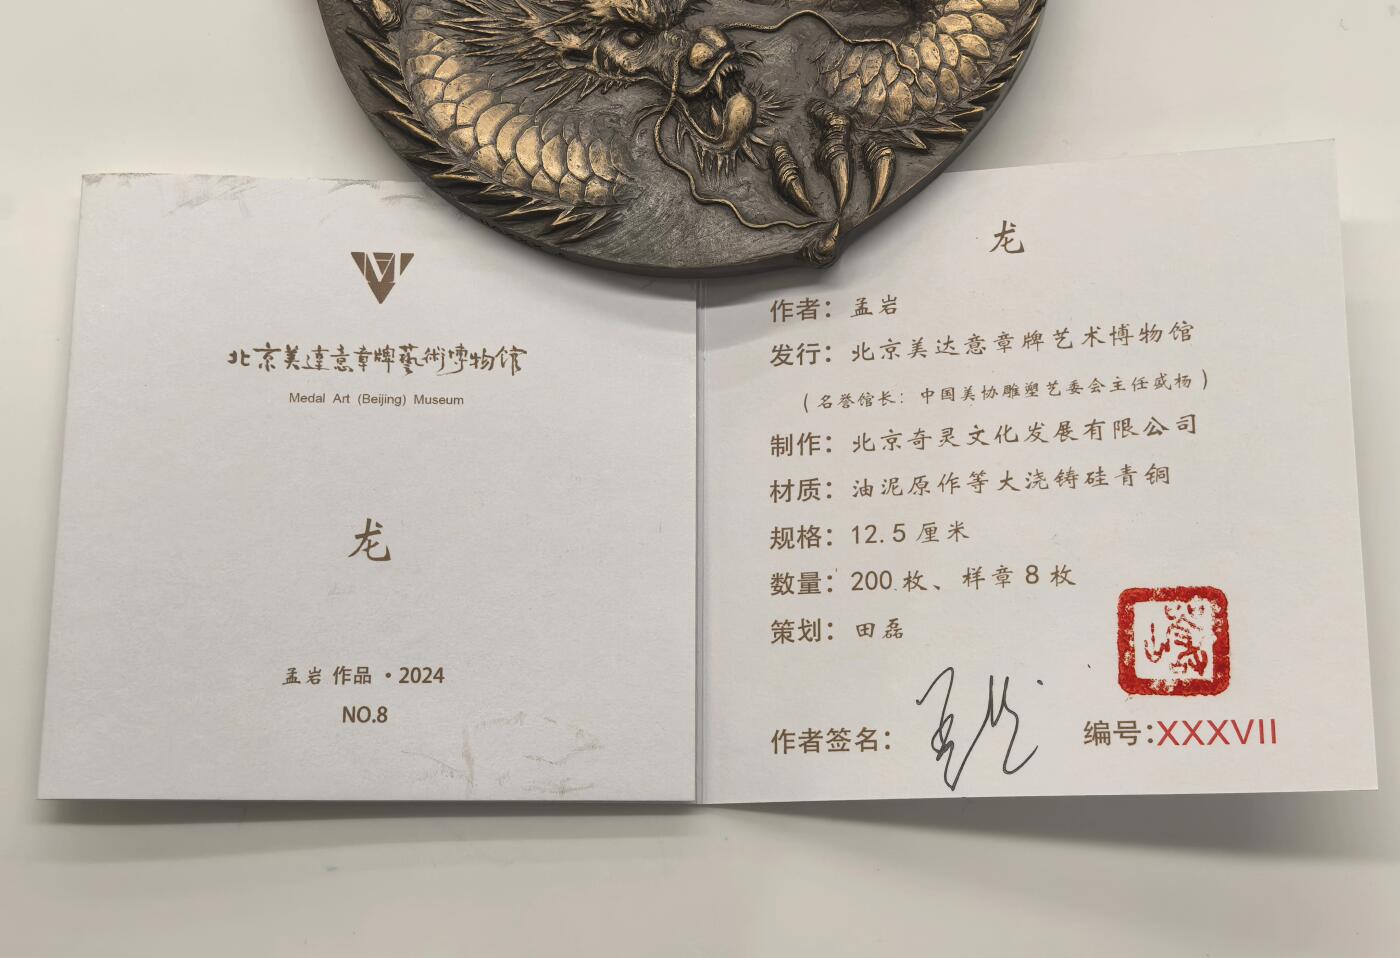 北京美達意章牌藝術博物馆
Medal Art (Beijing) Museum
龙
孟岩 作品 · 2024
NO.8
龙
作者：孟岩
发行：北京美达意章牌艺术博物馆
（名誉馆长：中国美协雕塑艺委会主任盛杨）
制作：北京奇灵文化发展有限公司
材质：油泥原作等大浇铸硅青铜
规格：12.5 厘米
数量：200 枚、样章 8 枚
策划：田磊
作者签名：
编号:XXXVII